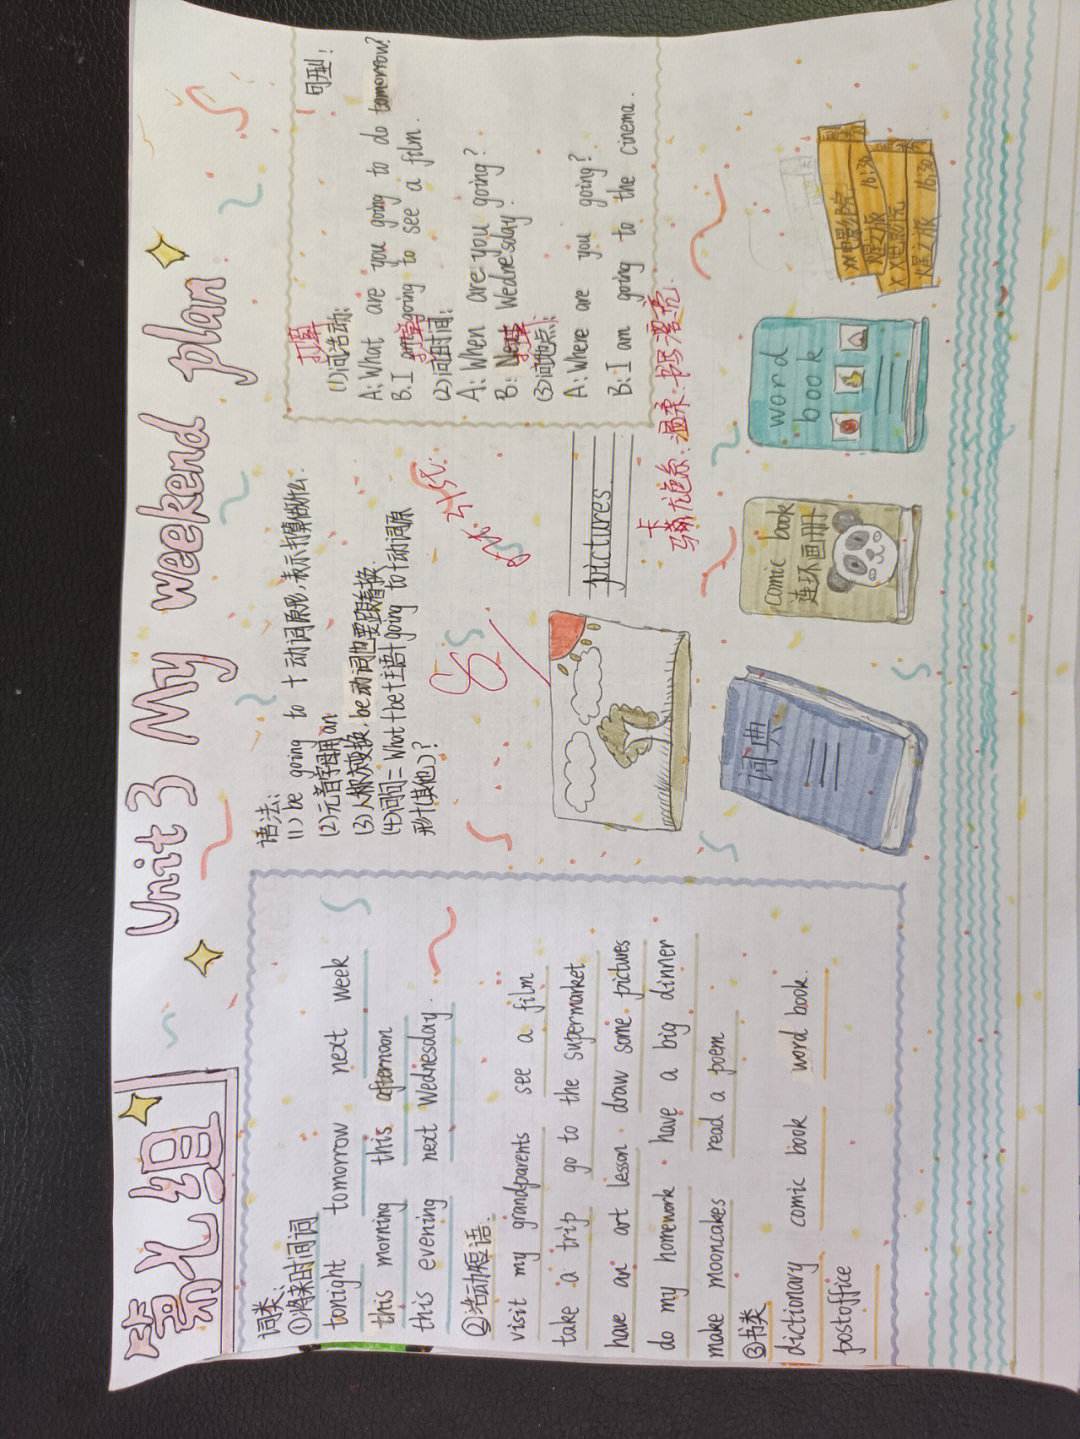 曙光组
Unit 3 My weekend plan
词类:
①将来时间词
tonight tomorrow next week
this morning this afternoon
this evening next Wednesday.
②活动短语.
visit my grandparents see a film
take a trip go to the supermarket
have an art lesson. draw some pictures
do my homework. have a big dinner
make mooncakes read a poem
③书类
dictionary comic book word book.
postoffice
语法:
(1) be going to + 动词原形,表示打算做什么.
(2)元音字母用an
(3)人称变换,be动词也要跟着换.
(4)问句=What+be+主语+going to+动词原
形+(其他)?
pictures
句型:
打算
(1)问活动:
A: What are you going to do tomorrow?
B. I am going to see a film.
打算
(2)问时间:
A: When are you going?
B: Next Wednesday.
打算
(3)问地点:
A: Where are you going?
B: I am going to the cinema.
词典
comic book
连环画册
word
book
XX电影院
火星之旅 16:30
XX电影院
火星之旅 16:30